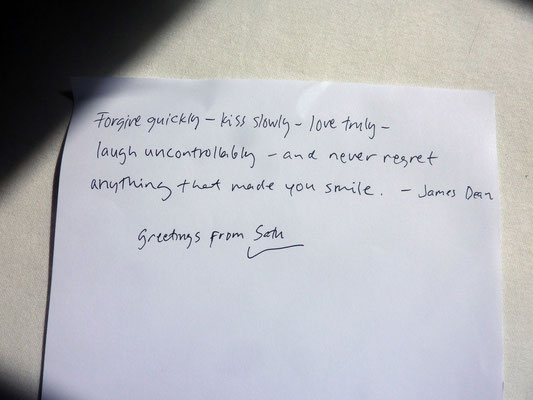 Forgive quickly – kiss slowly – love truly –
laugh uncontrollably – and never regret
anything that made you smile. – James Dean
greetings from Seth